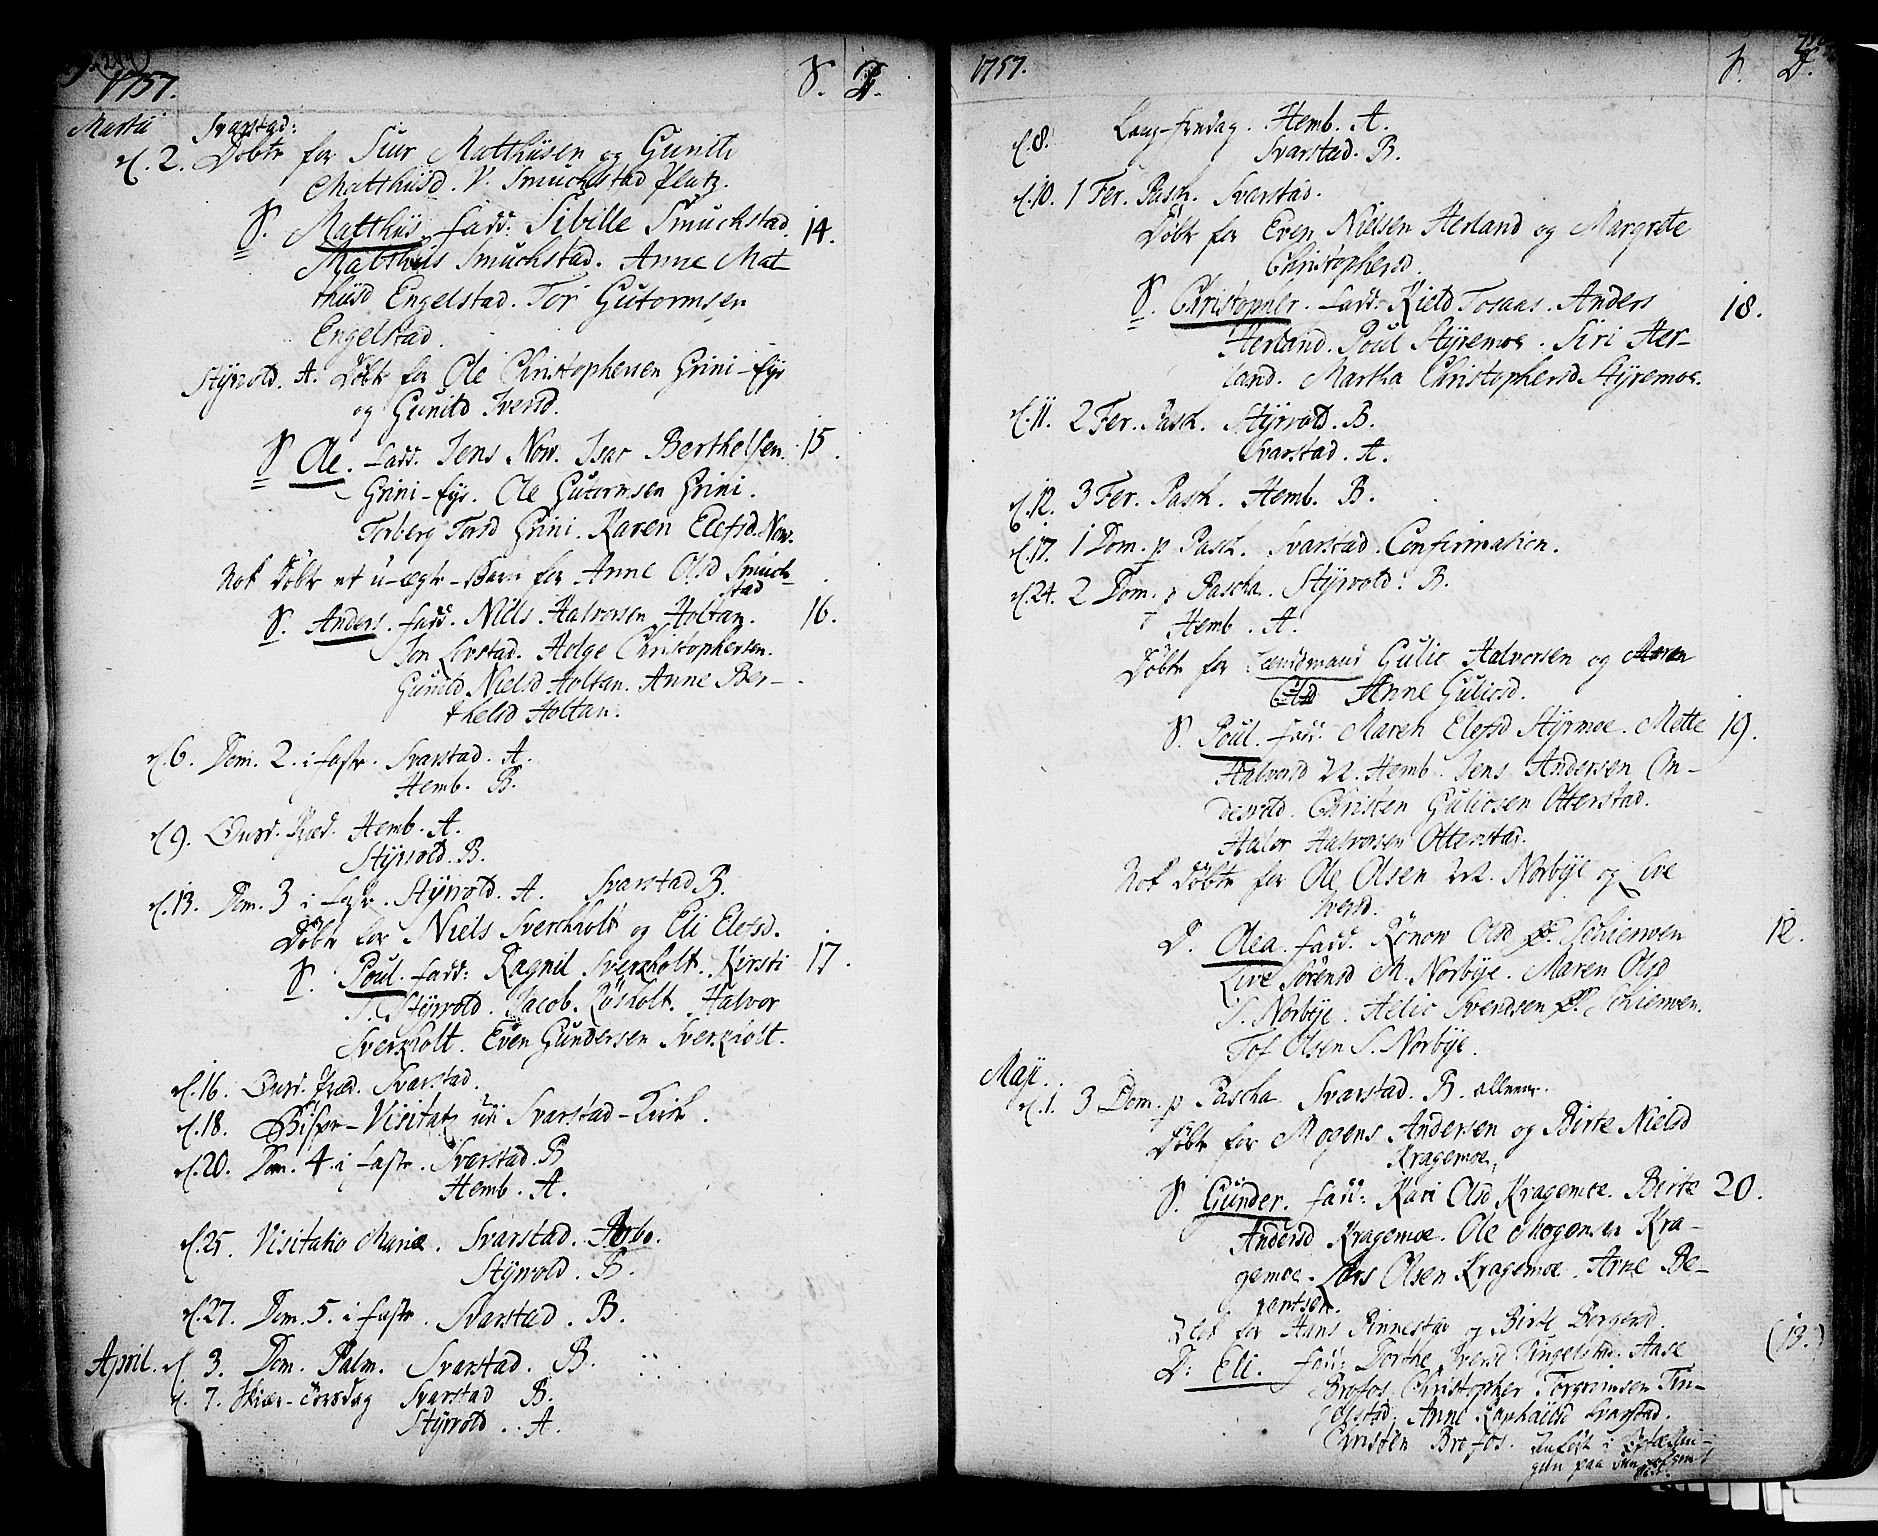 1757.
S. D.
Martii
Svarstad:
d. 2. Döbte for Siur Matthisen og Gunild
Matthisd. V. Smuchstad platz.
S. Matthis. fadd: Sibille Smuchstad 14.
Matthis Smuchstad. Anne Mat-
thisd Engelstad. Tor Gutormsen
Engelstad.
Styrvold. A. Döbte for Ole Christophersen Grini-Eje
og Gunild Iversd.
S Ole. fadd. Jens Now. Isac Berthelsen 15.
Grini-Eje. Ole Gutormsen Grini.
Torberg Torsd Grini. Karen Elefsd. Now.
Nok Döbte et u-ægte-Barn for Anne Olsd Smuch-
stad
S. Anders. fadd. Niels Halvorsen Holtan. 16.
Jon Livstad. Holge Christophersen.
Gunild Nielsd Holtan. Anne Ber-
thelsd Holtan.
d. 6. Dom. 2. i faste. Svarstad. A.
Hemb. B.
d. 9. Onsd. Præd. Hemb. A.
Styrvold. B.
d. 13. Dom. 3 i faste. Styrvold. A. Svarstad B.
Döbte for Niels Sverkholt og Eli Elefsd.
S. Poul. fadd: Ragnil Sverkholt. Kirsti 17.
Styrvold. Jacob. Rösholt. Halvor
Sverkholt. Even Gundersen Sverkholt.
d. 16. Onsd. Præd. Svarstad.
d. 18. Bispe-Visitatz udi Svarstad-Kirk.
d. 20. Dom. 4. i faste. Svarstad. B
Hemb. A.
d. 25. Visitatio Mariæ. Svarstad. Arbo.
Styrvold. B.
d. 27. Dom. 5. i faste. Svarstad. B.
April. d. 3. Dom. Palm. Svarstad. B.
d. 7. Skiær-Torsdag Svarstad B.
Styrvold. A.
1757.
S. D.
d. 8. Lang-fredag. Hemb. A.
Svarstad. B.
d. 10. 1 Fer. Pasch. Svarstad.
Döbte for Even Nielsen Herland og Margrete
Christophersd.
S. Christopher. fadd: Kield Tosaas. Anders 18.
Herland. Poul Styremoe. Siri Her-
land. Martha Christophersd Styremoe.
d. 11. 2 Fer. Pasch. Styrvold. B.
Svarstad. A.
d. 12. 3 Fer. Pasch. Hemb. B.
d. 17. 1 Dom. p Pasch. Svarstad. Confirmation.
d. 24. 2 Dom. p Pascha. Styrvold. B.
Hemb. A.
Döbte for Lænsmand Gulic Halvorsen og Maren
Olsd Anne Gulicsd.
S. Poul. fadd. Maren Elefsd Styrmoe. Mette 19.
Halvorsd N. Hemb. Jens Andersen On-
desvold. Christen Gulicsen Otterstad.
Halvor Halvorsen Otterstad.
Nok Döbte for Ole Olsen N. Norbye og Live
Iversd.
D. Olea. fadd. Rönow Olsd Ö. Schierven 12.
Live Sörensd M. Norbye. Maren Olsd
S. Norbye. Helie Svendsen Ö. Schierven.
Tof Olsen S. Norbye.
Maji.
d. 1. 3 Dom. p Pascha. Svarstad. B. allene.
Döbte for Mogens Andersen og Birte Nielsd
Kragemoe.
S. Gunder. fadd: Kari Olsd Kragemoe. Birte 20.
Andersd Kragemoe. Ole Mogensen Kra-
gemoe. Lars Olsen Kragemoe. Arne Be-
rentsen.
Döbt for Hans Rinnestad og Birte Borgersd.
D: Eli. fadd: Dorthe Engelstad. Aase (13.)
Brofos. Christopher Torgrimsen
Anne Svarstad.
Christen Brofos.